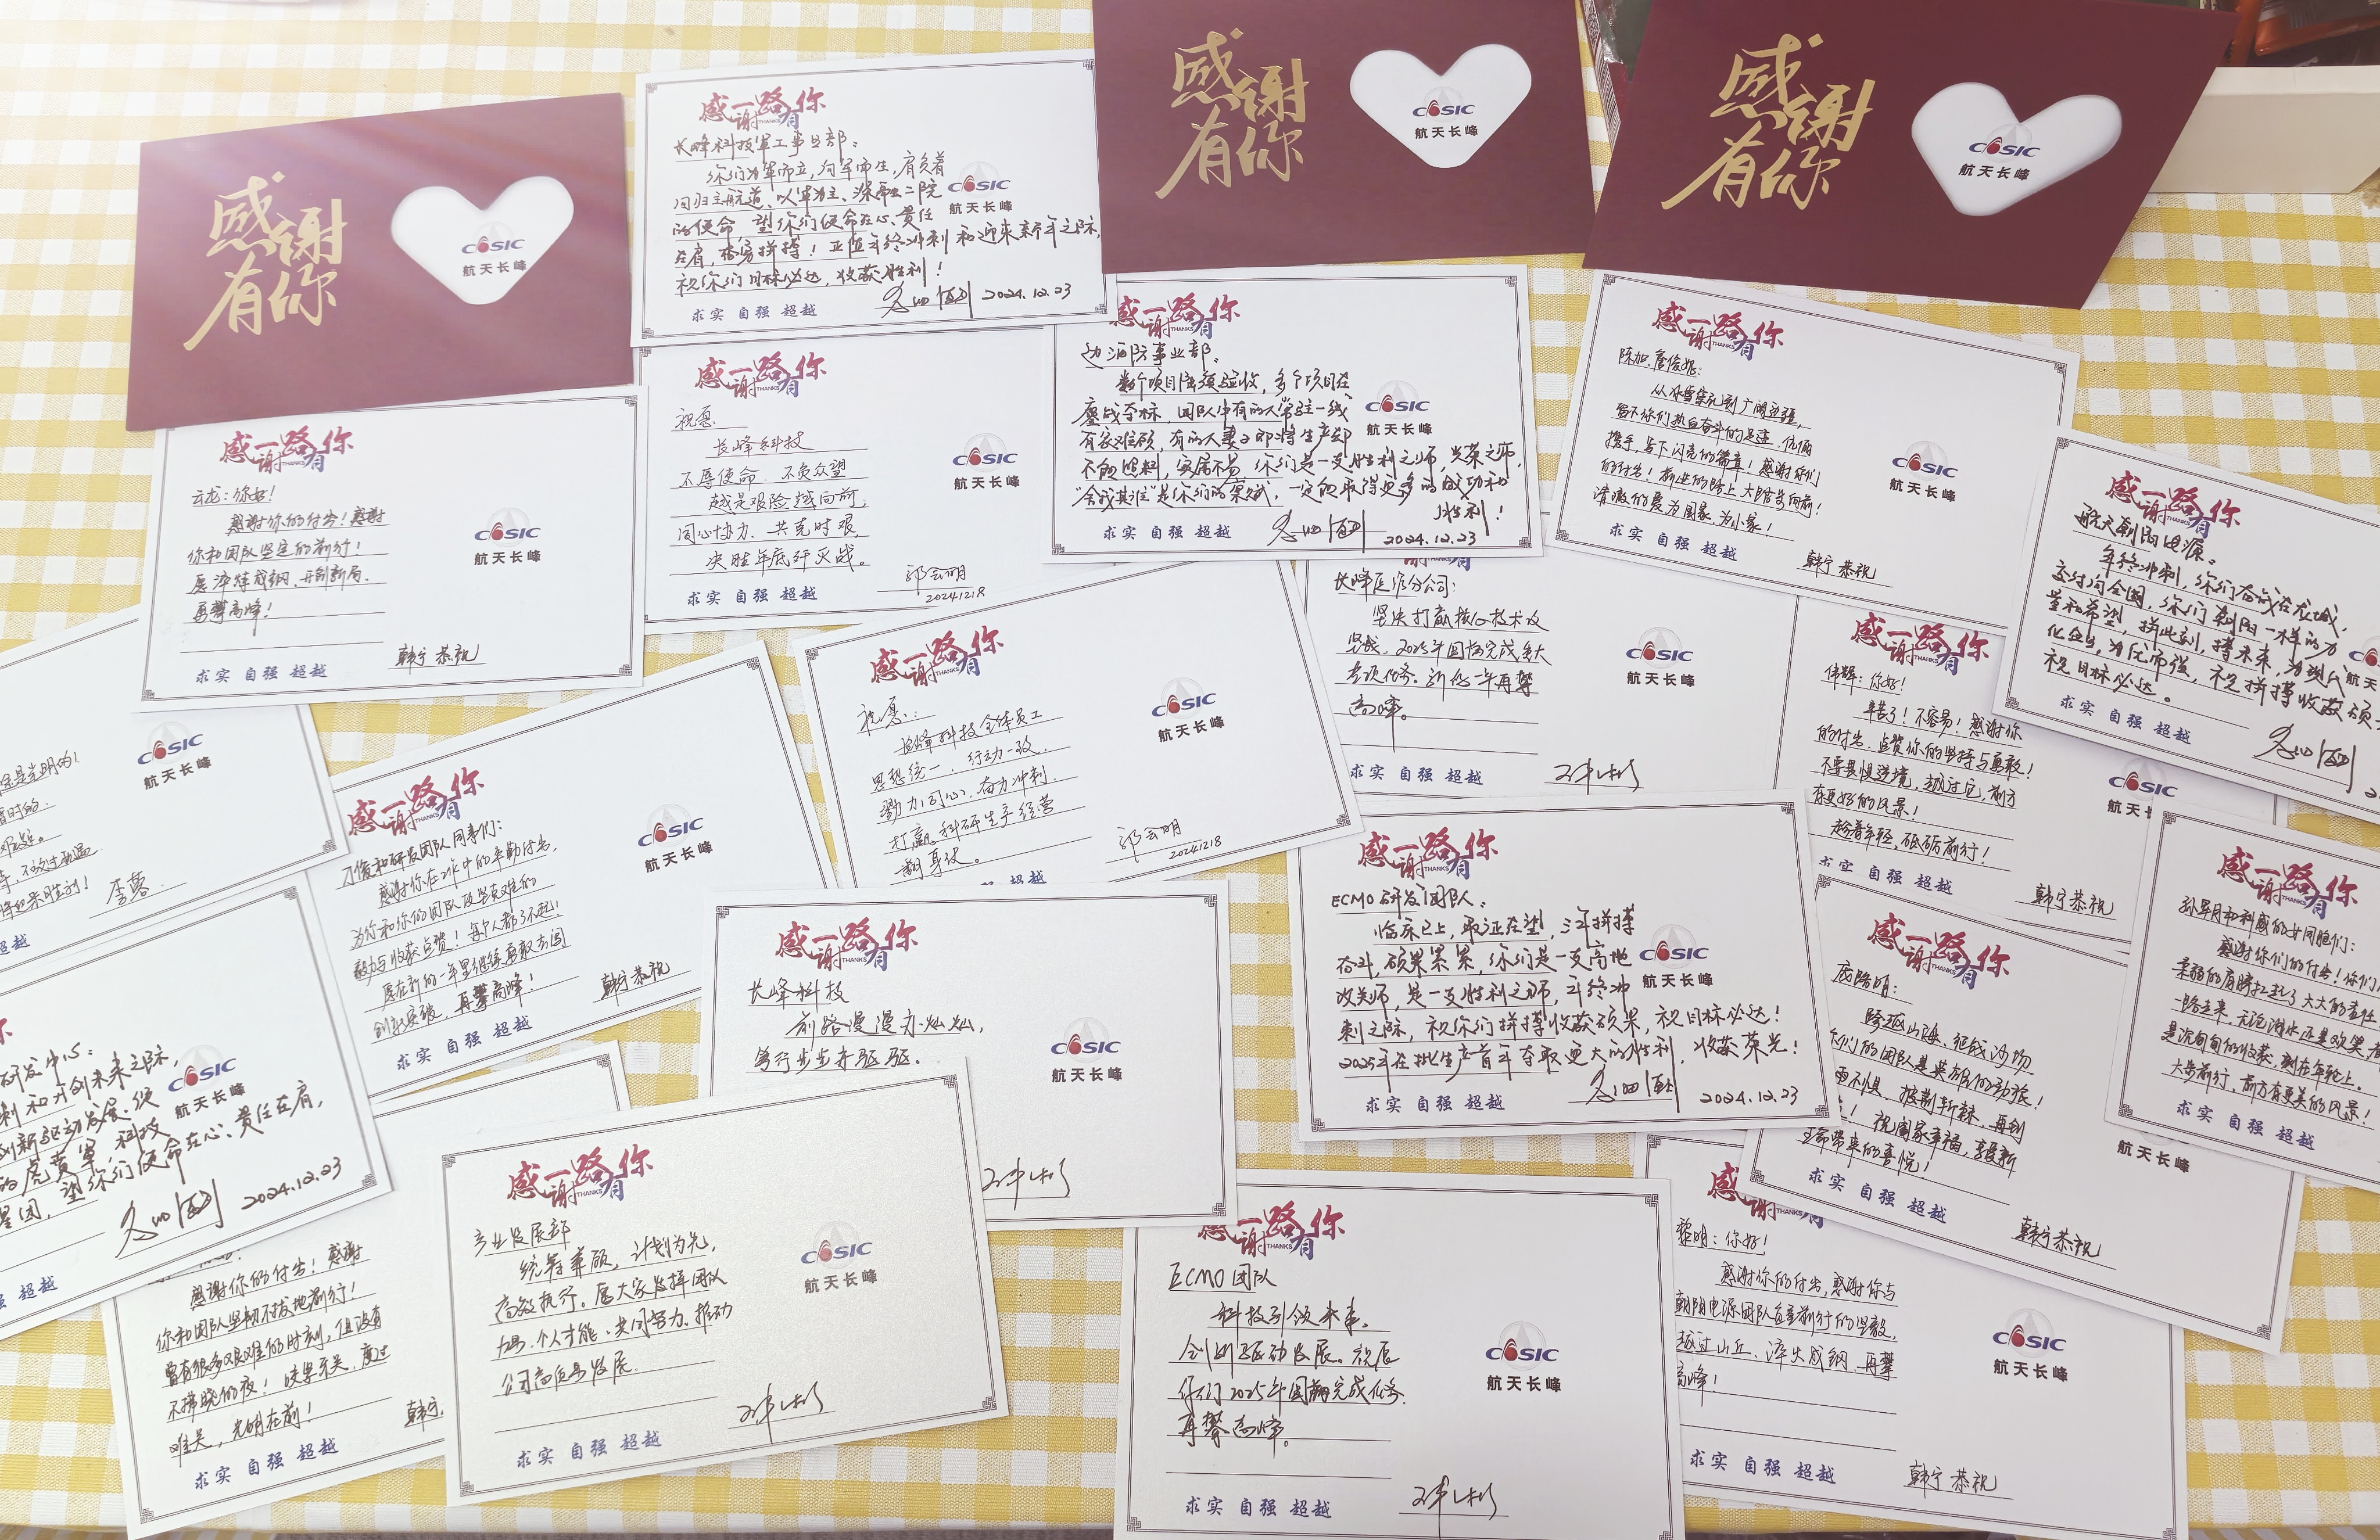 感谢
有你
COSIC
航天长峰
感谢一路有你
THANKS
长峰科技军工事业部：
你们为军而立，向军而生，肩负着
回归主航道、以军为主、深融二院
的使命，望你们使命在心、责任
在肩，奋勇拼搏！正值年终冲刺和迎来新年之际，
祝你们目标必达，收获胜利！
2024.12.23
求实 自强 超越
COSIC
航天长峰
感谢
有你
COSIC
航天长峰
感谢
有你
COSIC
航天长峰
感谢一路有你
THANKS
云龙：你好！
感谢你的付出！感谢
你和团队坚定的前行！
愿淬炼成钢，开创新局，
再攀高峰！
韩宁 恭祝
求实 自强 超越
COSIC
航天长峰
感谢一路有你
THANKS
祝愿
长峰科技
不辱使命，不负众望
越是艰险越向前，
同心协力，共克时艰，
决胜年底歼灭战。
20241218
求实 自强 超越
COSIC
航天长峰
感谢一路有你
THANKS
边海防事业部：
数个项目陆续验收，多个项目在
鏖战夺标，团队中有的人常驻一线
有家难顾，有的人妻子即将生产却
不能照料，家属不易，你们是一支胜利之师，光荣之师，
“舍我其谁”是你们的气质，一定能取得更多的成功和
胜利！
2024.12.23
求实 自强 超越
COSIC
航天长峰
感谢一路有你
THANKS
从冰雪
留下你们热血奋斗的足迹，
携手，写下闪亮的篇章！感谢你们
的付出！前进的路上大踏步向前！
清澈的爱为国家，为小家！
韩宁 恭祝
求实 自强 超越
COSIC
航天长峰
感谢一路有你
THANKS
航天朝阳电源：
年终冲刺，你们奋战在龙城，
交付向全国，你们朝阳一样的力
量和希望，拼此刻，搏未来，为现代
化企业，为优而强，祝拼搏收获硕
祝目标必达。
求实 自强 超越
航天
长峰医疗分公司：
坚决打赢核心技术攻
坚战，2025年圆满完成重大
专项任务。新的一年再攀
高峰。
求实 自强 超越
COSIC
航天长峰
感谢一路有你
THANKS
伟辉：你好！
辛苦了！不容易！感谢你
的付出，点赞你的坚持与勇敢！
不要畏惧逆境，越过它，前方
有更好的风景！
趁着年轻，砥砺前行！
韩宁恭祝
求实 自强 超越
COSIC
航天长
是光明的！
暂时的
李蓉
COSIC
航天长峰
感谢一路有你
THANKS
才俊和研发团队同事们：
感谢你在工作中的辛勤付出，
为你和你的团队攻坚克难的
毅力与收获点赞！每个人都了不起！
愿在新的一年里继续勇敢去闯
创新突破，再攀高峰！
韩宁 恭祝
求实 自强 超越
COSIC
航天长峰
感谢一路有你
THANKS
祝愿：
长峰科技全体员工
思想统一，行动一致，
勠力同心，奋力冲刺，
打赢科研生产经营
翻身仗。
20241218
COSIC
航天长峰
感谢一路有你
THANKS
ECMO研发团队：
临床已上，取证在望，三年拼搏
奋斗，硕果累累，你们是一支高地
攻关师，是一支胜利之师，年终冲
刺之际，祝你们拼搏收获硕果，祝目标必达！
2025年在批生产首年夺取更大的胜利，收获荣光！
2024.12.23
求实 自强 超越
COSIC
航天长峰
感谢一路有你
THANKS
庞路明：
跨越山海，征战沙场
你们的团队是英雄的劲旅！
不惧，披荆斩棘，再到
！祝阖家幸福，享受新
生命带来的喜悦！
韩宁恭祝
求实 自强 超越
航天长峰
感谢一路有你
THANKS
感谢你们的付出！你们用
柔弱的肩膀扛起了大大的责任
一路走来，无论泪水还是欢笑，
是沉甸甸的收获，刻在年轮上。
大步前行，前方有更美的风景！
求实 自强 超越
研发中心：
刺和开创未来之际，
创新驱动发展，使
的虎贲军，科技
望你们使命在心、责任在肩，
2024.12.23
超越
COSIC
航天长峰
感谢一路有你
THANKS
长峰科技
前路漫漫亦灿灿，
笃行步步亦驱驱。
COSIC
航天长峰
感谢你的付出！感谢
你和团队坚韧不拔地前行！
曾有很多艰难的时刻，但没有
不拂晓的夜！
难关，光明在前！
韩宁
求实 自强 超越
感谢一路有你
THANKS
产业发展部
统筹兼顾，计划为先，
高效执行。愿大家发挥团队
优势、个人才能，共同努力，推动
公司高质量发展。
求实 自强 超越
COSIC
航天长峰
感谢一路有你
THANKS
ECMO团队
科技引领未来，
创新驱动发展。祝愿
你们2025年圆满完成任务
再攀高峰。
求实 自强 超越
COSIC
航天长峰
感谢有
THANKS
黎明：你好！
感谢你的付出，感谢你与
朝阳电源团队负重前行的坚毅，
越过山丘，淬火成钢，再攀
高峰！
韩宁 恭祝
求实 自强 超越
COSIC
航天长峰